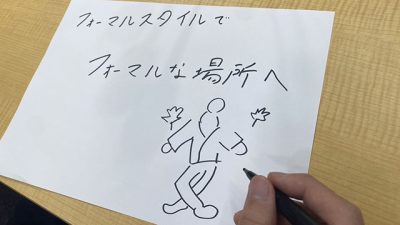 フォーマルスタイルで
フォーマルな場所へ